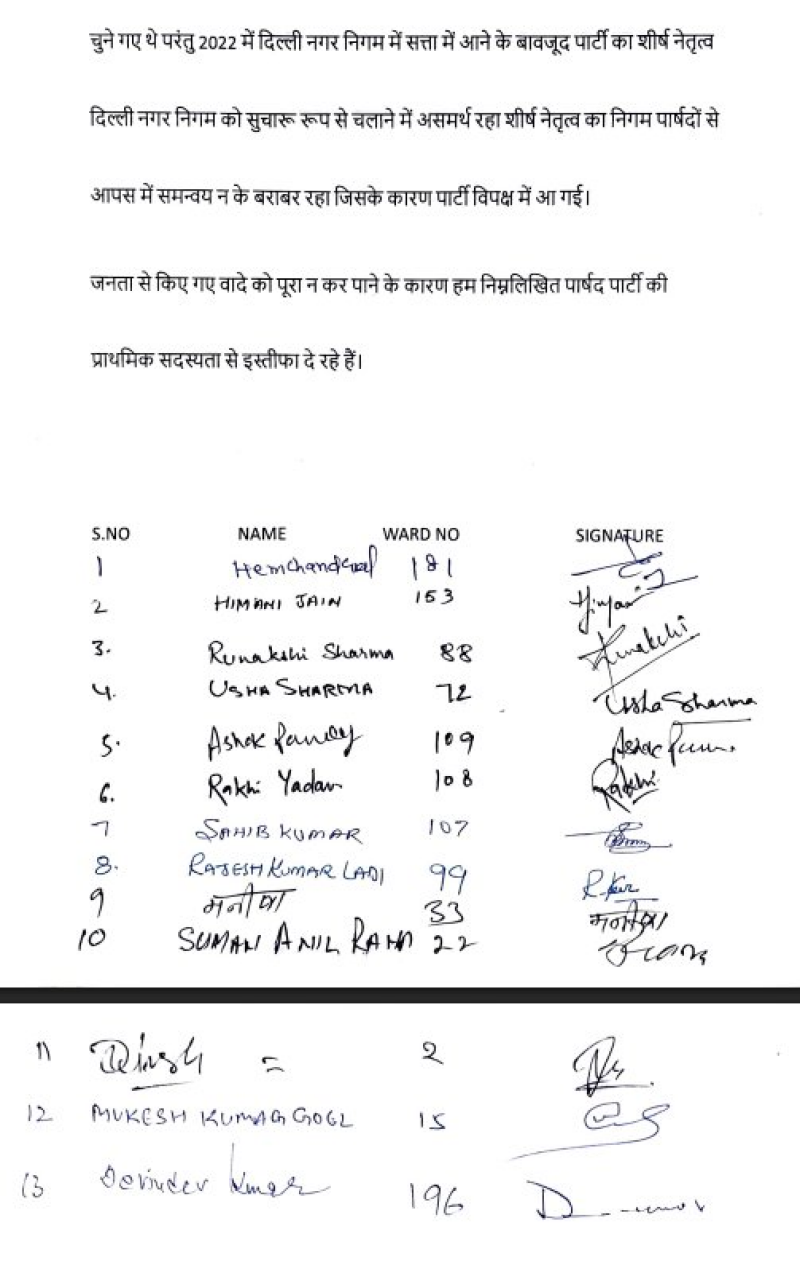 चुने गए थे परंतु 2022 में दिल्ली नगर निगम में सत्ता में आने के बावजूद पार्टी का शीर्ष नेतृत्व
दिल्ली नगर निगम को सुचारू रूप से चलाने में असमर्थ रहा शीर्ष नेतृत्व का निगम पार्षदों से
आपस में समन्वय न के बराबर रहा जिसके कारण पार्टी विपक्ष में आ गई।
जनता से किए गए वादे को पूरा न कर पाने के कारण हम निम्नलिखित पार्षद पार्टी की
प्राथमिक सदस्यता से इस्तीफा दे रहे हैं।
S.NO NAME WARD NO SIGNATURE
1 Hemchand 181
2 HIMANI JAIN 153 Himani
3. Runakshi Sharma 88 Runakshi
4. USHA SHARMA 72 Usha Sharma
5. Ashok Pandey 109 Ashok
6. Rakhi Yadav 108 Rakhi
7 SAHIB KUMAR 107
8. RAJESH KUMAR LADI 99
9 मनीषा 33 मनीषा
10 SUMAN ANIL RANA 22
11 Dinesh = 2
12 MUKESH KUMAR GOEL 15
13 Devinder Kumar 196